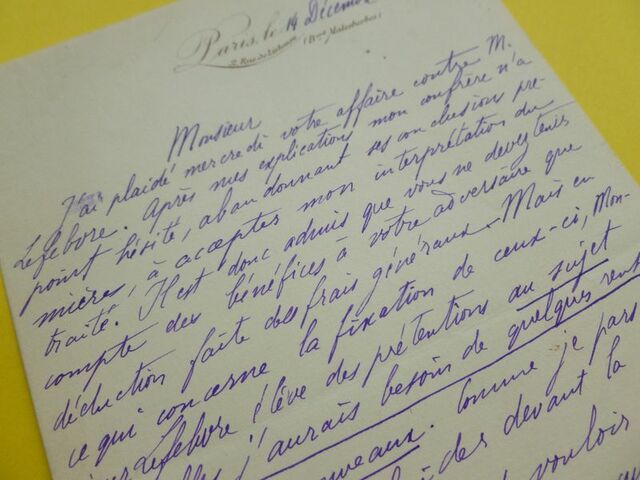 Paris, le 14 Décem
(Boul. Malesherbes)
Monsieur
J'ai plaidé mercredi votre affaire contre M.
Lefebvre. Après mes explications mon confrère n'a
point hésité, abandonnant ses conclusions pre-
mières, à accepter mon interprétation du
traité. Il est donc admis que vous ne devez tenir
compte des bénéfices à votre adversaire que
déduction faite des frais généraux. Mais en
ce qui concerne la fixation de ceux-ci, Mon-
Lefebvre élève des prétentions au sujet
j'aurais besoin de quelques rens
comme je pars
des devant la
vouloir